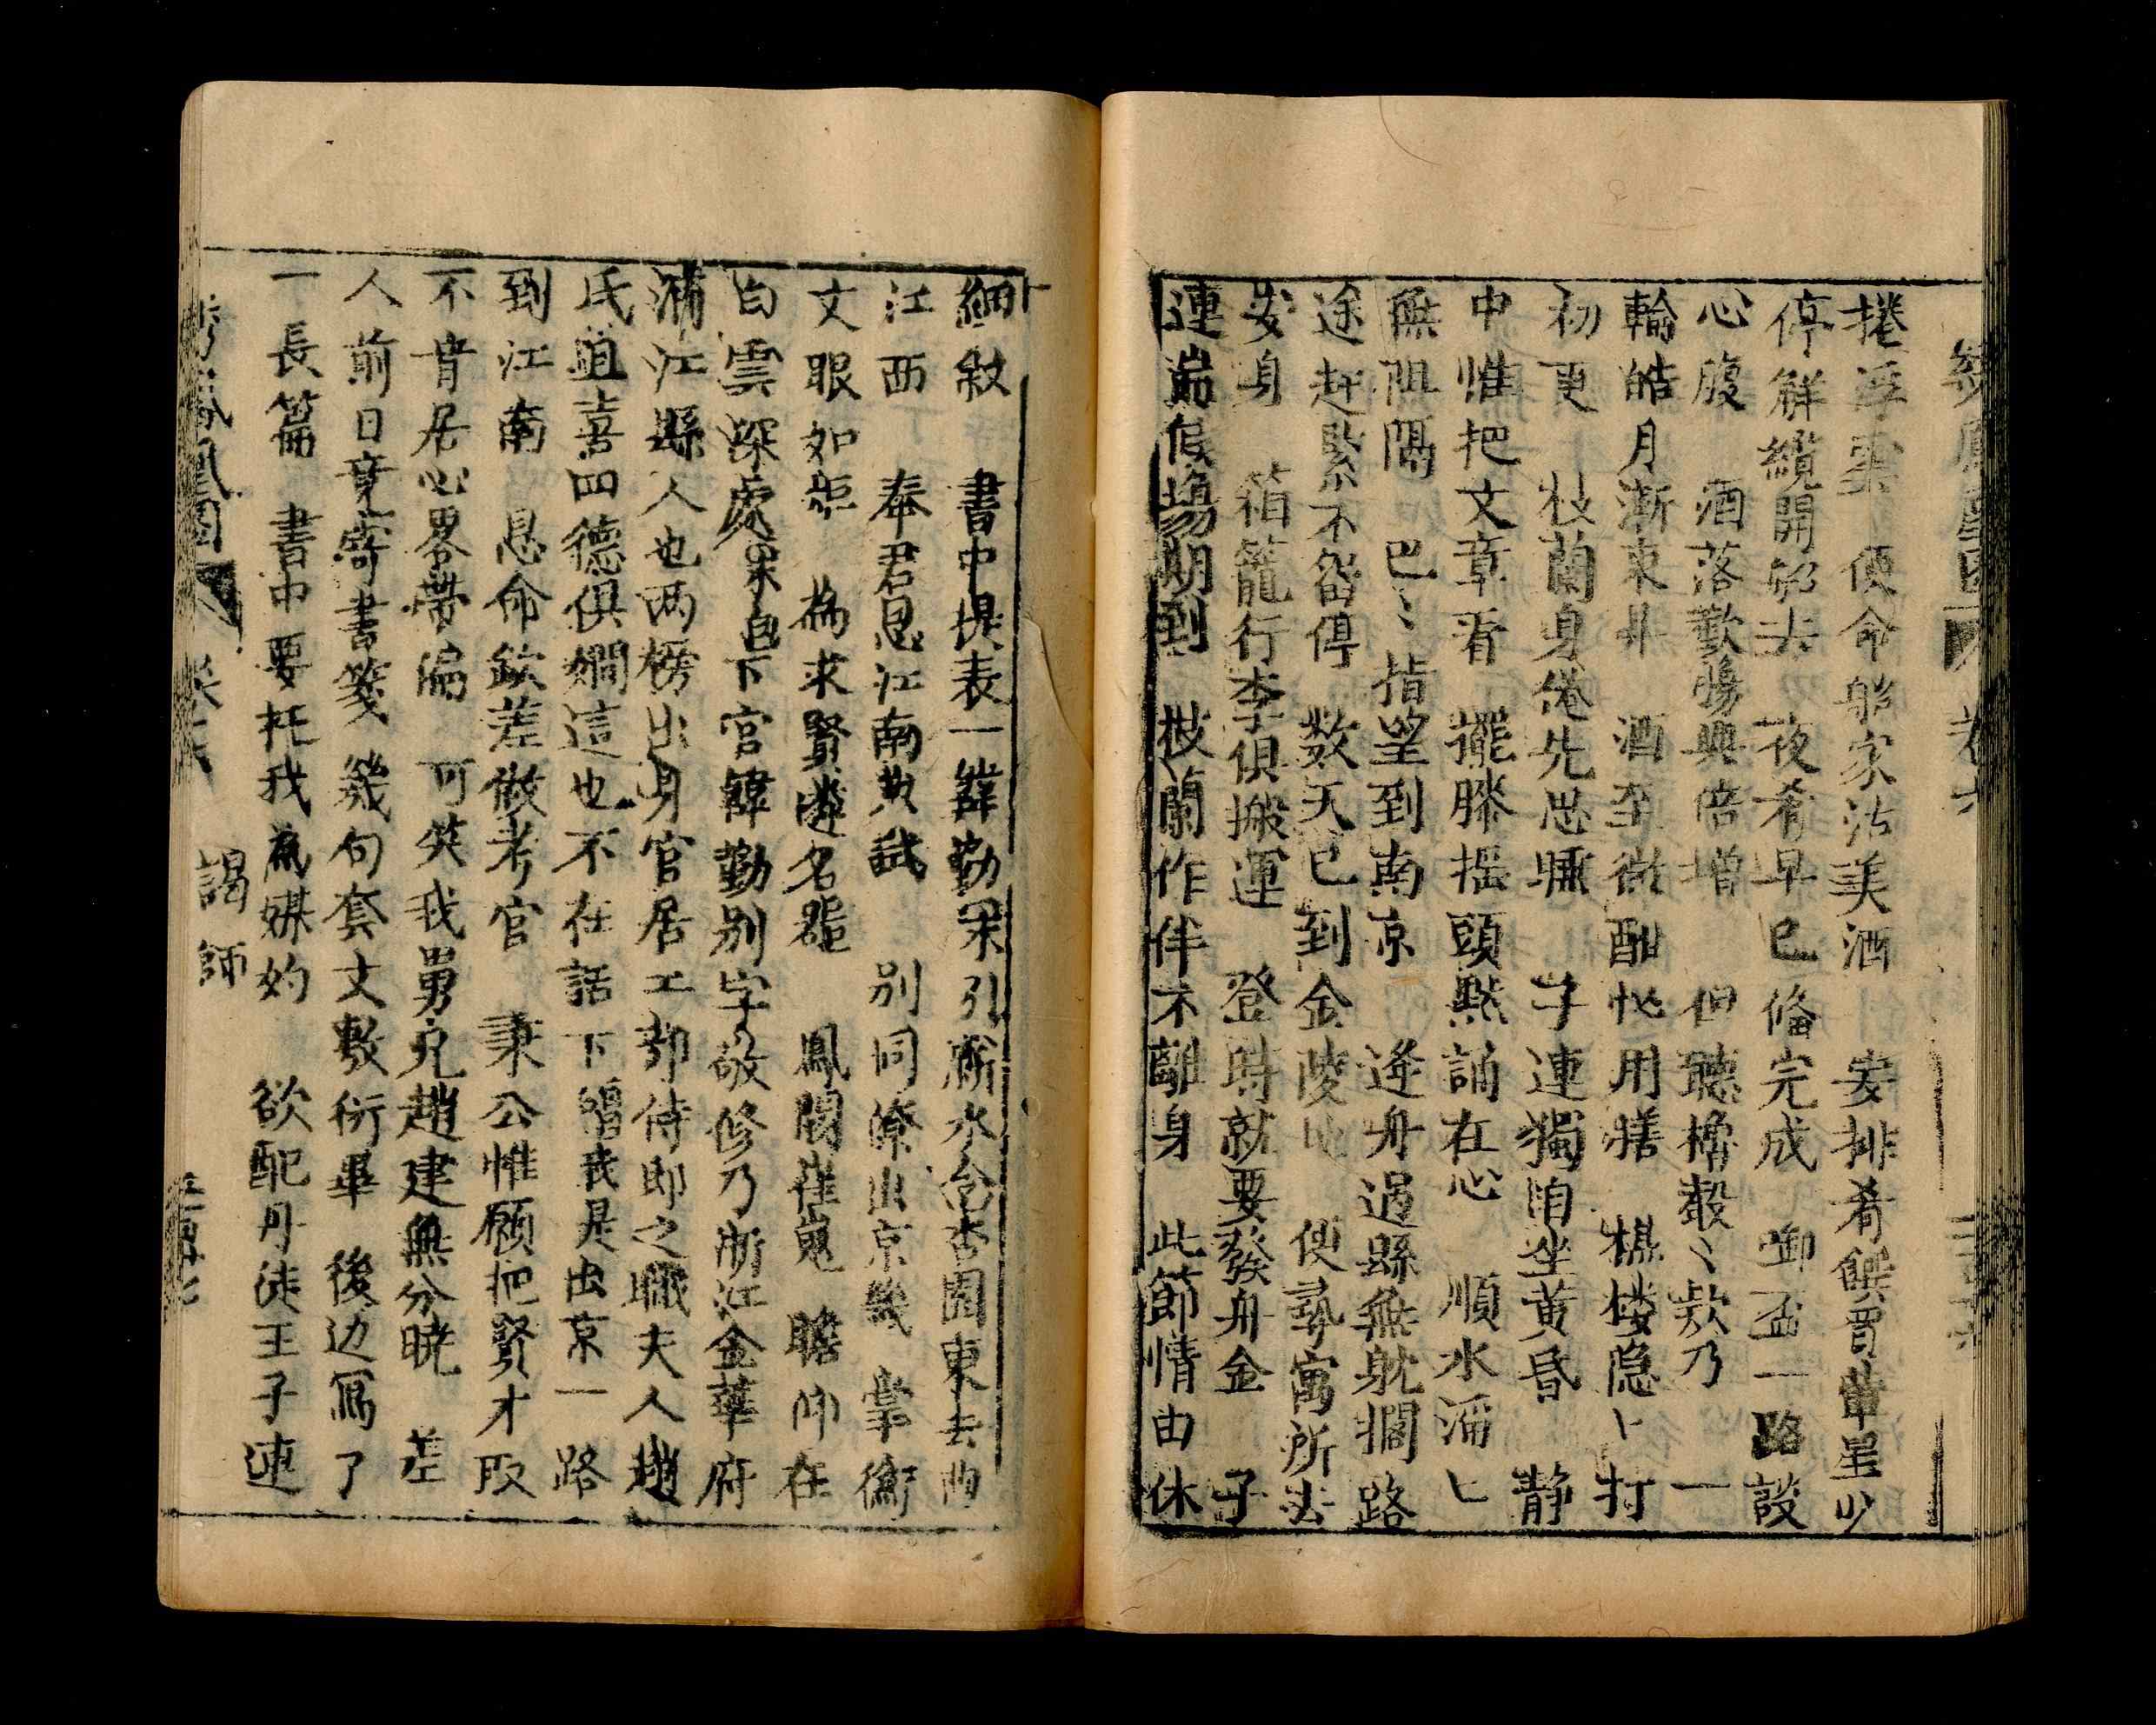 捲浮雲 便命船家沽美酒 安排肴饌買葷星少
停解纜開船去 夜肴早已俻完成 啣盃一路談
心腹 酒落歡腸興倍增 但聽櫓殸〻欵乃 一
輪皓月漸東升 酒至微酣忙用膳 樵楼隐卜打
初更 枝蘭身倦先思睡 子連獨自坐黄昏 静
中惟把文章看 擺膝摇頭黙誦在心 順水滔匕
無阻隔 巴〻指望到南京 逢舟過縣無躭擱 路
途赶緊不畱停 数天已到金陵地 便尋寓所去
安身 箱籠行李俱搬運 登時就要發舟金 子
連耑候塲期到 枝蘭作伴不離身 此節情由休
細敘 書中提表一韓勤 杲引 水 杏園東去
江西 奉君恩江南典試 别同僚出京畿 掌衡
文眼如炬 為求賢遴名 鳳閣崔嵬 瞻仰在
白雲深處杲白下官韓勤别字敬修乃浙江金華府
浦江縣人也两榜出身官居工部侍郎之職夫人趙
氏 喜四德俱嫻這也不在話下 我是出京一路
到江南 恩命欽差做考官 秉公惟願把賢才取
不肯居心畧帶偏 可笑我男兒趙建無分曉 差
人前日竟寄書箋 幾句套文敷衍畢 後边寫了
一長篇 書中要托我為媒妁 欲配丹徒王子連
鳳凰圖 謁師